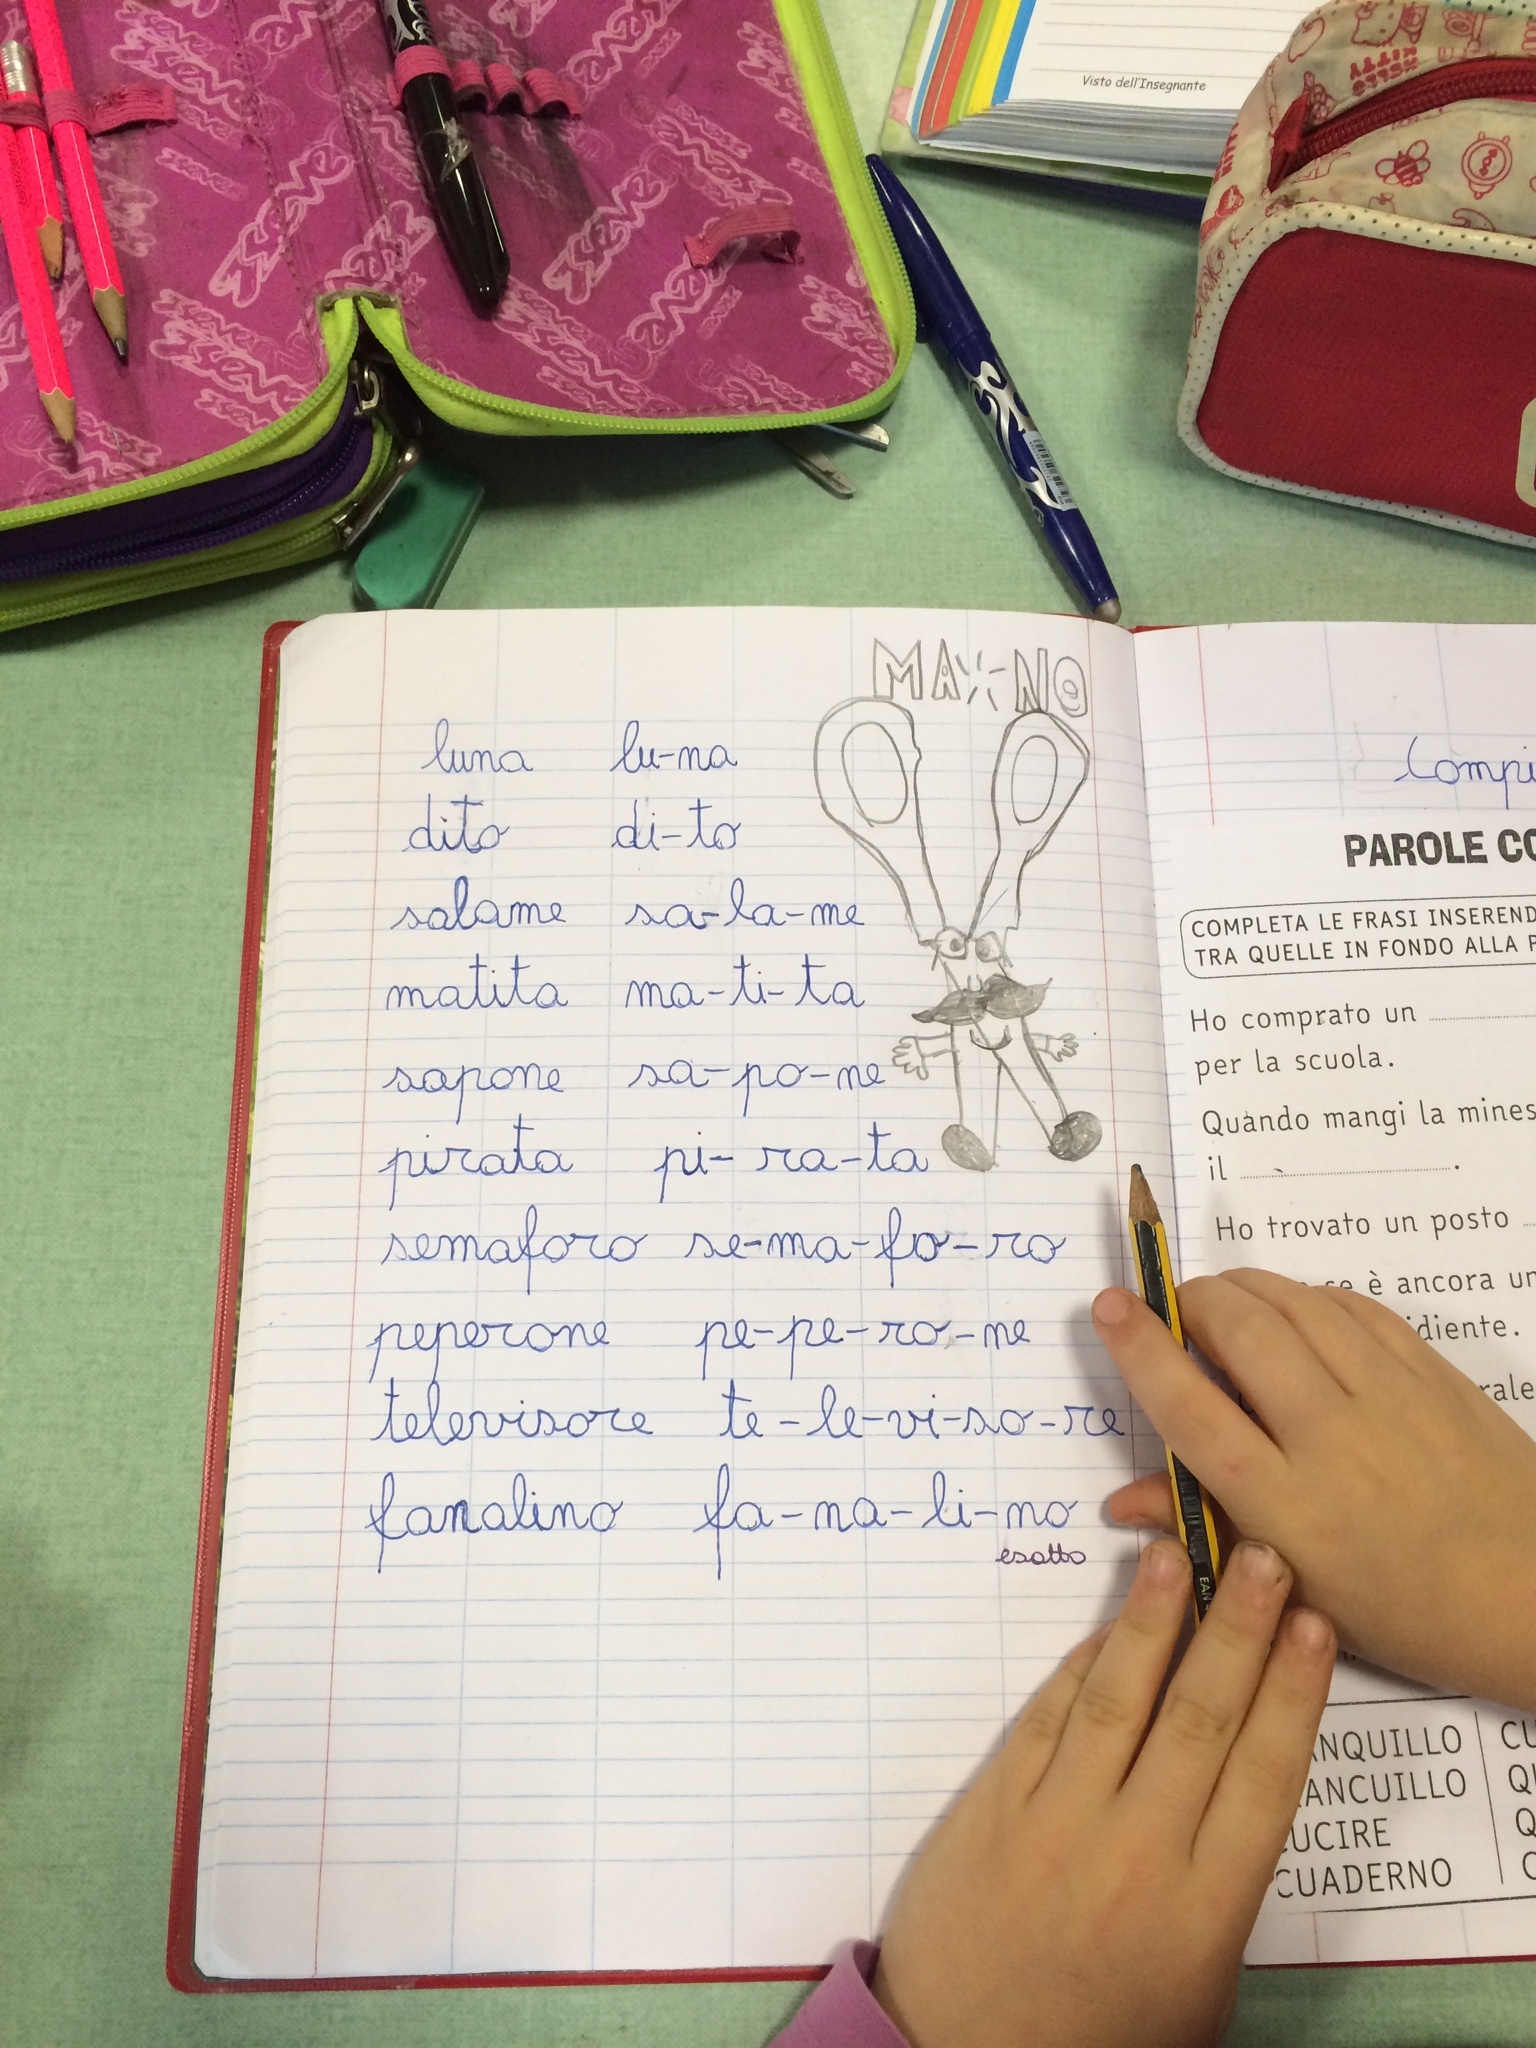 Visto dell'Insegnante
HELLO KITTY
MA NO
luna lu-na
dito di-to
salame sa-la-me
matita ma-ti-ta
sapone sa-po-ne
pirata pi-ra-ta
semaforo se-ma-fo-ro
peperone pe-pe-ro-ne
televisore te-le-vi-so-re
fanalino fa-na-li-no
esatto
Compi
PAROLE CO
COMPLETA LE FRASI INSEREND
TRA QUELLE IN FONDO ALLA P
Ho comprato un
per la scuola.
Quando mangi la mines
il .
Ho trovato un posto
se è ancora un
idiente.
rale
EAN
ANQUILLO
RANCUILLO
CUCIRE
CUADERNO
CU
QU
Q